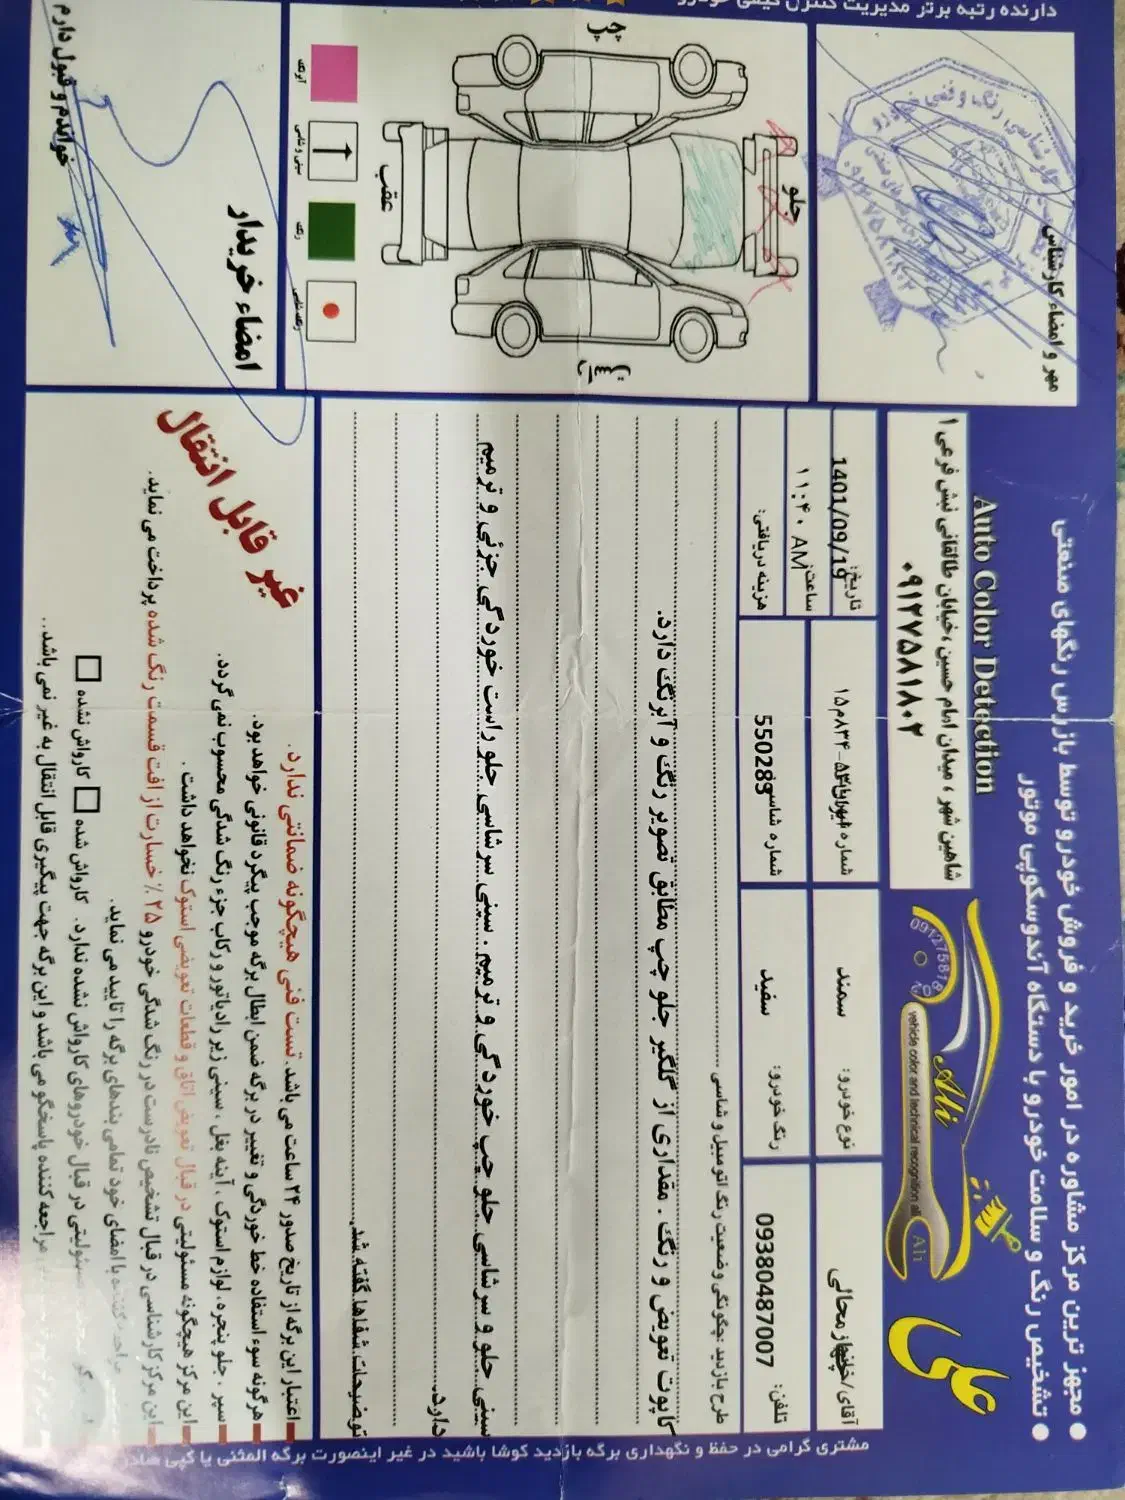 ● مجهز ترین مرکز مشاوره در امور خرید و فروش خودرو توسط بازرس رنگهای صنعتی
● تشخیص رنگ و سلامت خودرو با دستگاه آندوسکوپی موتور
علی
Ali
091275818
vehicle color and technical recognition ali
Ali
Auto Color Detection
شاهین شهر ، میدان امام حسین ،خیابان طالقانی نبش فرعی ۱
۰۹۱۲۷۵۸۱۸۰۲
آقای/خانم:
نوع خودرو: سمند
تاریخ: 1401/09/19
ساعت: ۱۱:۴۰ AM
تلفن: 09380487007
رنگ خودرو: سفید
شماره شاسی: 550283
هزینه دریافتی:
طرح بازدید چگونگی وضعیت رنگ اتومبیل و شاسی
کاپوت تعویض و رنگ . مقداری از گلگیر جلو چپ مطابق تصویر رنگ و آبرنگ دارد.
سینی جلو و سرشاسی جلو چپ خوردگی و ترمیم . سینی سرشاسی جلو راست خوردگی جزئی و ترمیم
دارد.
توضیحات شفاها گفته شد
اعتبار این برگه از تاریخ صدور ۲۴ ساعت می باشد. تست فنی هیچگونه ضمانتی ندارد.
هرگونه سوء استفاده خط خوردگی و تغییر در برگه ضمن ابطال برگه موجب پیگرد قانونی خواهد بود.
سپر ، جلو پنجره، لوازم استوک ، آینه بغل ، سینی زیر رادیاتور و رکاب جزء رنگ شدگی محسوب نمی گردد.
این مرکز هیچگونه مسئولیتی در قبال تعویض اتاق و قطعات تعویضی استوک نخواهد داشت .
این مرکز کارشناسی در قبال تشخیص نادرست در رنگ شدگی خودرو ۲۵ ٪ خسارت از افت قسمت رنگ شده پرداخت می نماید.
با امضای خود تمامی بندهای برگه را تایید می نماید.
در قبال خودروهای کارواش نشده ندارد. کارواش شده کارواش نشده
مراجعه کننده پاسخگو می باشد و این برگه جهت پیگیری قابل انتقال به غیر نمی باشد..
غیر قابل انتقال
مهر و امضاء کارشناس
چپ
جلو
عقب
راست
آبرنگ
رنگ
امضاء خریدار
خواندم و قبول دارم
دارنده رتبه برتر مدیریت کنترل کیفی خودرو
مشتری گرامی در حفظ و نگهداری برگه بازدید کوشا باشید در غیر اینصورت برگه المثنی یا کپی صادر